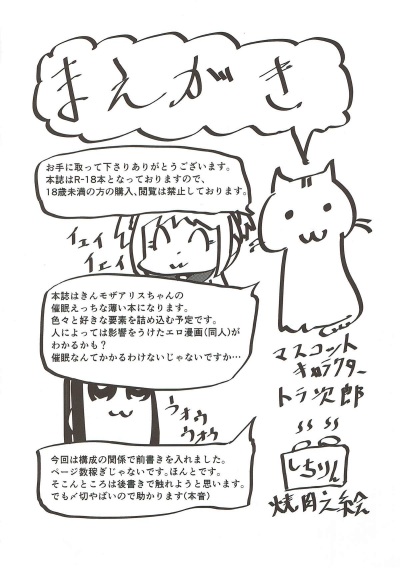 まえがき
お手に取って下さりありがとうございます。
本誌はR-18本となっておりますので、
18歳未満の方の購入、閲覧は禁止しております。
イェイ
イェイ
本誌はきんモザアリスちゃんの
催眠えっちな薄い本になります。
色々と好きな要素を詰め込む予定です。
人によっては影響をうけたエロ漫画(同人)が
わかるかも?
催眠なんてかかるわけないじゃないですか…
マスコット
キャラクター
トラ次郎
ウォウ
ウォウ
今回は構成の関係で前書きを入れました。
ページ数稼ぎじゃないです。ほんとです。
そこんところは後書きで触れようと思います。
でも〆切やばいので助かります(本音)
しちりん
焼肉之絵